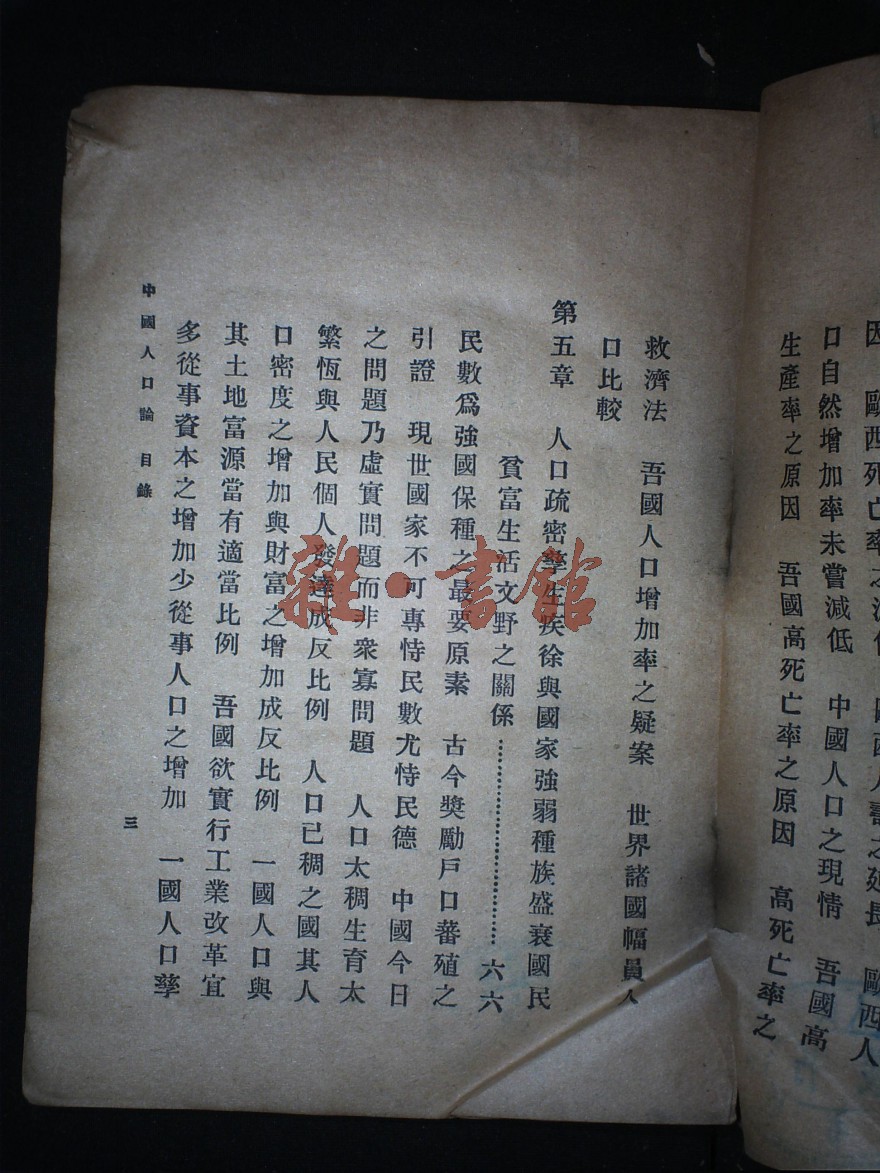 因 歐西死亡率之減低 歐西人壽之延長 歐西人
口自然增加率未嘗減低 中國人口之現情 吾國高
生產率之原因 吾國高死亡率之原因 高死亡率之
救濟法 吾國人口增加率之疑案 世界諸國幅員人
口比較
第五章 人口疏密孳生疾徐與國家強弱種族盛衰國民
貧富生活文野之關係……………………六六
民數爲強國保種之最要原素 古今獎勵戶口蕃殖之
引證 現世國家不可專恃民數尤恃民德 中國今日
之問題乃虛實問題而非衆寡問題 人口太稠生育太
繁恆與人民個人發達成反比例 人口已稠之國其人
口密度之增加與財富之增加成反比例 一國人口與
其土地富源當有適當比例 吾國欲實行工業改革宜
多從事資本之增加少從事人口之增加 一國人口孳
中國人口論 目錄
三
雜·書館